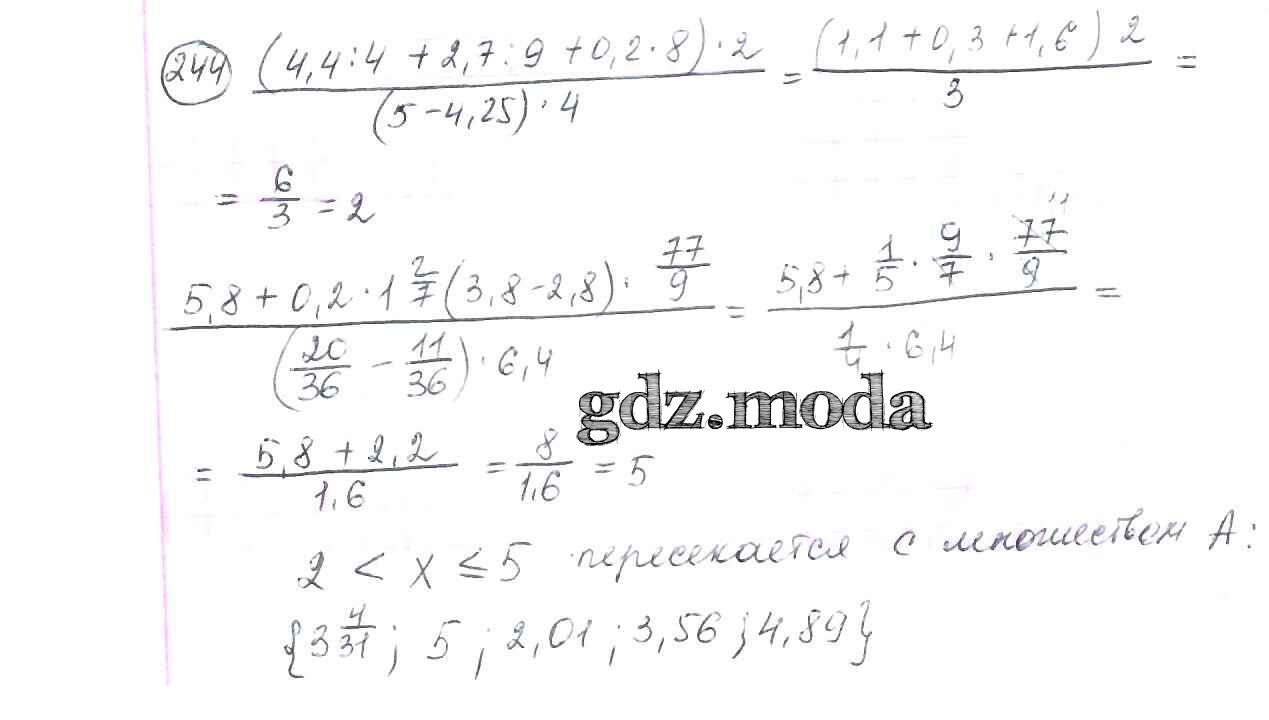 244 (4,4:4 + 2,7:9 + 0,2·8)·2 / (5-4,25)·4 = (1,1+0,3+1,6) 2 / 3 =
= 6/3 = 2
5,8 + 0,2·1 2/7 (3,8-2,8)· 77/9 / (20/36 - 11/36)·6,4 = 5,8 + 1/5 · 9/7 · 77/9 11 / 1/4 · 6,4 =
gdz.moda
= 5,8 + 2,2 / 1,6 = 8/1,6 = 5
2 < x ≤ 5 пересекается с множеством А:
{3 4/31; 5; 2,01; 3,56; 4,89}